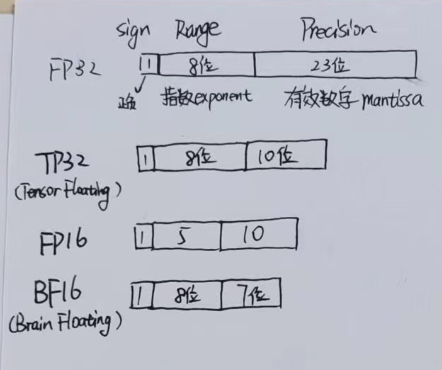 sign Range Precision
FP32 1 8位 23位
正负 指数exponent 有效数字 mantissa
TP32 1 8位 10位
(Tensor Floating)
FP16 1 5 10
BF16 1 8位 7位
(Brain Floating)